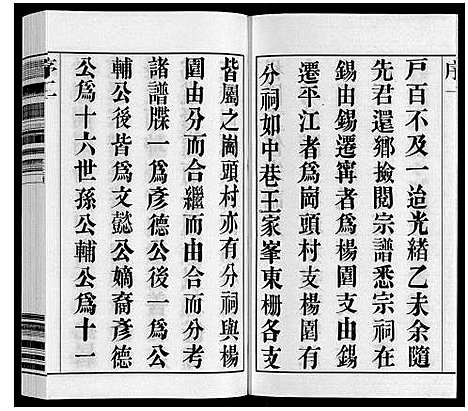 序一
戸百不及一迨光緒乙未余隨
先君還鄉檢閱宗譜悉宗祠在
錫由錫遷甯者爲楊圍支由錫
遷平江者爲崗頭村支楊圍有
分祠如中巷王家峯東柵各支
皆屬之崗頭村亦有分祠與楊
圍由分而合繼而由合而分考
諸譜牒一爲彥德公後一爲公
輔公後皆爲文懿公嫡裔彥德
公爲十六世孫公輔公爲十一
序二